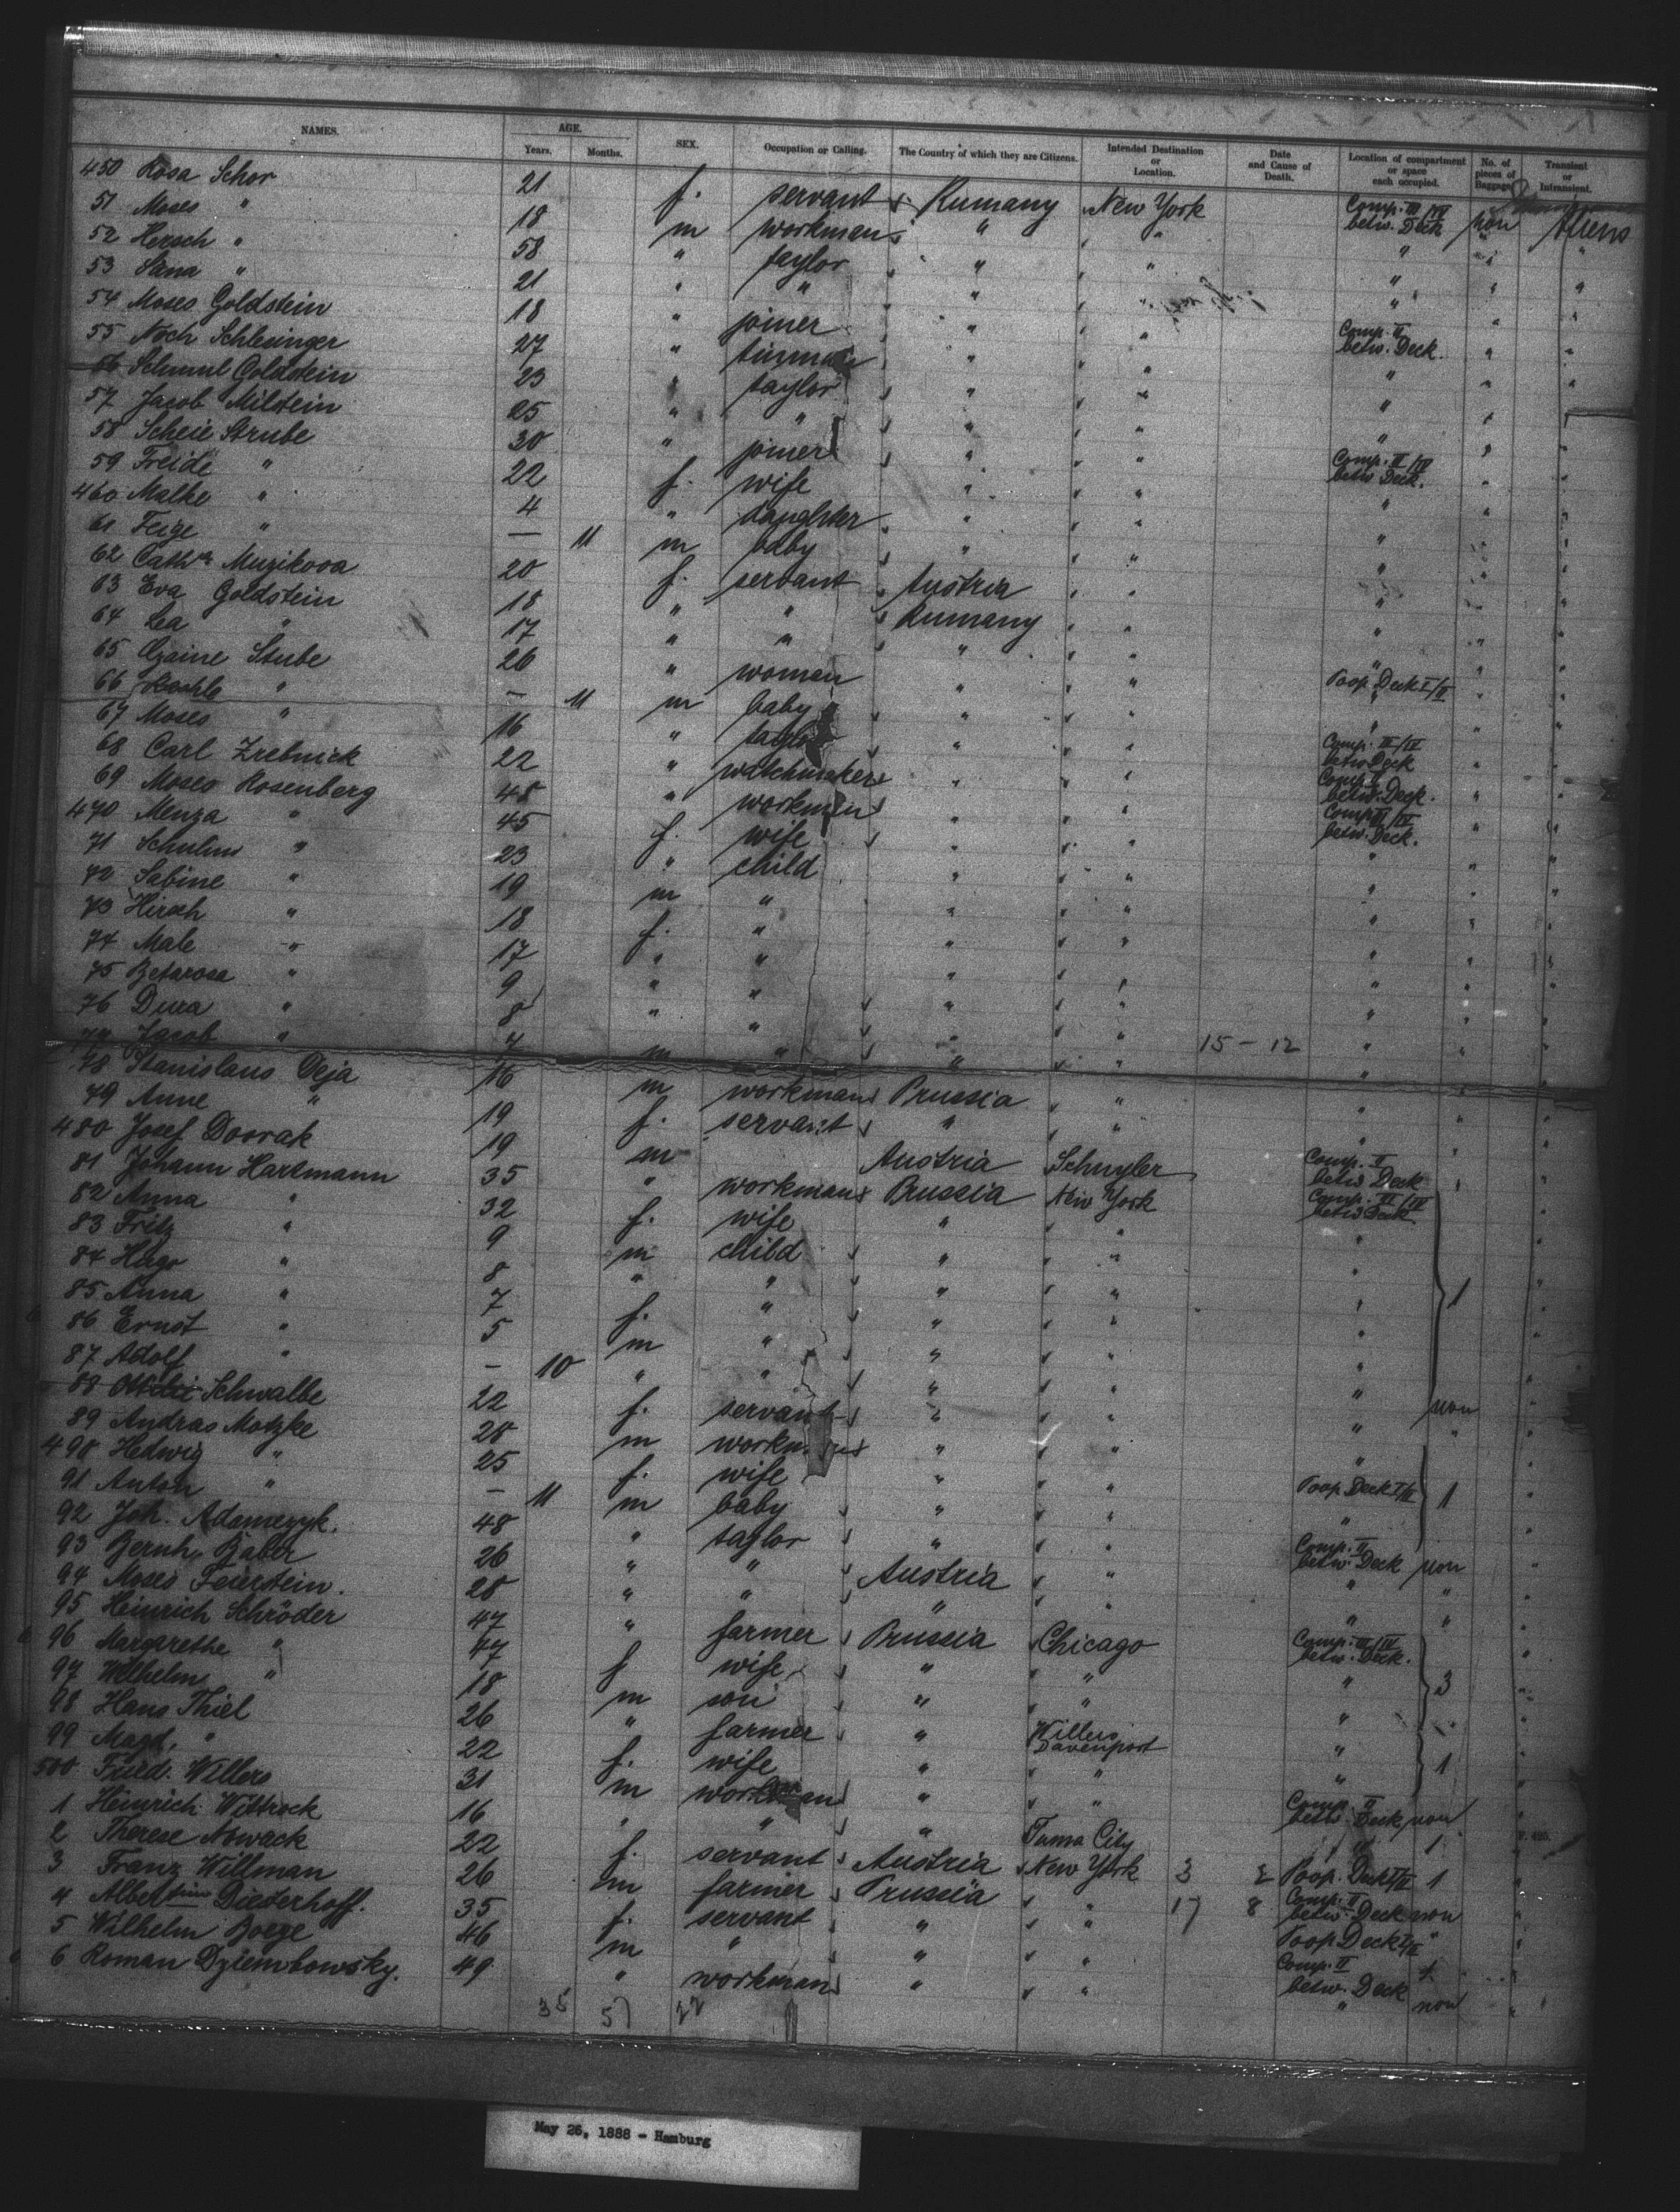 NAMES. AGE. Years. Months. SEX. Occupation or Calling. The Country of which they are Citizens. Intended Destination or Location. Date and Cause of Death. Location of compartment or space each occupied. No. of pieces of Baggage Transient or Intransient.
450 Rosa Schor 21 f. servant Rumany New York Comp. III/IV betw. Deck non
51 Moses " 18 m workman " " " " "
52 Hersch " 58 " taylor " " " " "
53 " 21 " " " " " " "
54 Moses Goldstein 18 " joiner " " Comp. II betw. Deck. " "
55 Noch Schlesinger 27 " tinman " " " " "
56 Schmul Goldstein 23 " taylor " " " " "
57 Jacob Milstein 25 " " " " " " "
58 Scheie Strube 30 " joiner " " Comp. III/IV betw. Deck. " "
59 Freide " 22 f. wife " " " " "
460 Malke " 4 " daughter " " " " "
61 Feige " — 11 m baby " " " " "
62 Muzikova 20 f. servant Austria " " " "
63 Eva Goldstein 18 " " Rumany " " " "
64 Lea " 17 " " " " " " "
65 Stube 26 " woman " " Poop Deck I/II " "
66 " — 11 m baby " " " " "
67 Moses " 16 " taylor " " Comp. III/IV betw. Deck " "
68 Carl Zrebnick 22 " watchmaker " " Comp. II betw. Deck. " "
69 Moses Rosenberg 48 " workman " " Comp. III/IV betw. Deck. " "
470 Menza " 45 f. wife " " " " "
71 " 23 " child " " " " "
72 Sabine " 19 m " " " " " "
73 Hirsch " 18 f. " " " " " "
74 Male " 17 " " " " " " "
75 " 9 " " " " " " "
76 Dura " 8 " " " " " " "
77 Jacob " 7 m " " " 15 - 12 " " "
78 Stanislaus Deja 16 m workman Prussia " " " "
79 Anne " 19 f. servant " " " " "
480 Josef Dvorak 19 m Austria Schuyler Comp. II betw. Deck " "
81 Johann Hartmann 35 " workman Prussia New York Comp. III/IV betw. Deck
82 Anna " 32 f. wife " " " "
83 Fritz " 9 m child " " " "
84 Hugo " 8 " " " " " 1 "
85 Anna " 7 f. " " " " "
86 Ernst " 5 m " " " " "
87 Adolf " — 10 " " " " " "
88 Schwalbe 22 f. servant " " " non "
89 Andras Motzke 28 m workman " " " "
490 Hedwig " 25 f. wife " " Poop Deck I/II 1 "
91 Anton " — 11 m baby " " " "
92 Joh. Adamczyk. 48 " taylor " " Comp. II betw. Deck non "
93 Bernh. 26 " " Austria " " " "
94 Moses Feierstein. 28 " " " " " " "
95 Heinrich Schröder 47 " farmer Prussia Chicago Comp. III/IV betw. Deck. "
96 Margarethe " 47 f wife " " " 3 "
97 Wilhelm " 18 m son " " " "
98 Hans Thiel 26 " farmer " Willers Davenport " "
99 Magd. " 22 f. wife " " " 1 "
500 Fried. Willers 31 m workman " " Comp. II betw. Deck non "
1 Heinrich Wittrock 16 " " " Tama City " 1 "
2 Therese Nowack 22 f. servant Austria New York 3 2 Poop Deck I/II 1 "
3 Franz Willman 26 m farmer Prussia " 17 8 Comp. II betw. Deck non "
4 Diederhoff. 35 f. servant " " Poop Deck I/II " "
5 Wilhelm Boege 46 m " " " Comp. II betw. Deck "
6 Roman Dziembowsky. 49 " workman " " " non "
35 57 22
May 26, 1888 - Hamburg